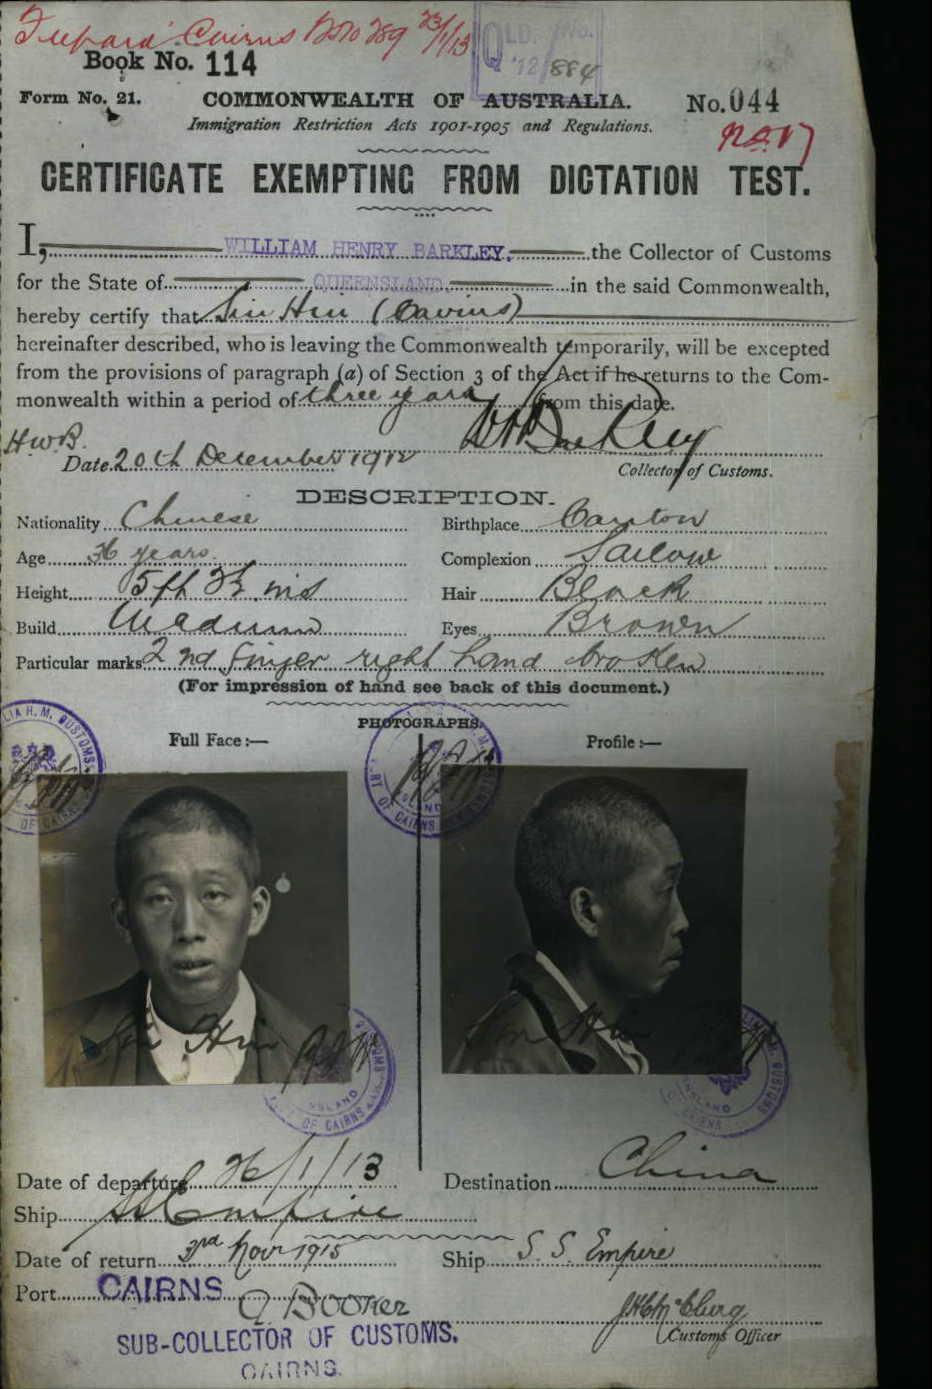 Cairns 23/1/13
QLD. No.
Q '12/884
Book No. 114
Form No. 21. COMMONWEALTH OF AUSTRALIA. No. 044
Immigration Restriction Acts 1901-1905 and Regulations.
No. 17
CERTIFICATE EXEMPTING FROM DICTATION TEST.
I, WILLIAM HENRY BARKLEY. the Collector of Customs
for the State of QUEENSLAND. in the said Commonwealth,
hereby certify that Sin Hin (Cavins)
hereinafter described, who is leaving the Commonwealth temporarily, will be excepted
from the provisions of paragraph (a) of Section 3 of the Act if he returns to the Com-
monwealth within a period of three years from this date.
H.W.B. WHBarkley
Date 20th December 1912
Collector of Customs.
DESCRIPTION.
Nationality Chinese Birthplace Canton
Age 36 years. Complexion Sallow
Height 5ft 3½ ins Hair Black
Build Medium Eyes Brown
Particular marks 2nd finger right hand broken
(For impression of hand see back of this document.)
PHOTOGRAPHS.
Full Face:— Profile:—
Sin Hin Sin Hin
Date of departure 26/1/13 Destination China
Ship SS Empire
Date of return 3rd Nov 1915 Ship S. S. Empire
Port CAIRNS
SUB-COLLECTOR OF CUSTOMS.
Customs Officer
CAIRNS.